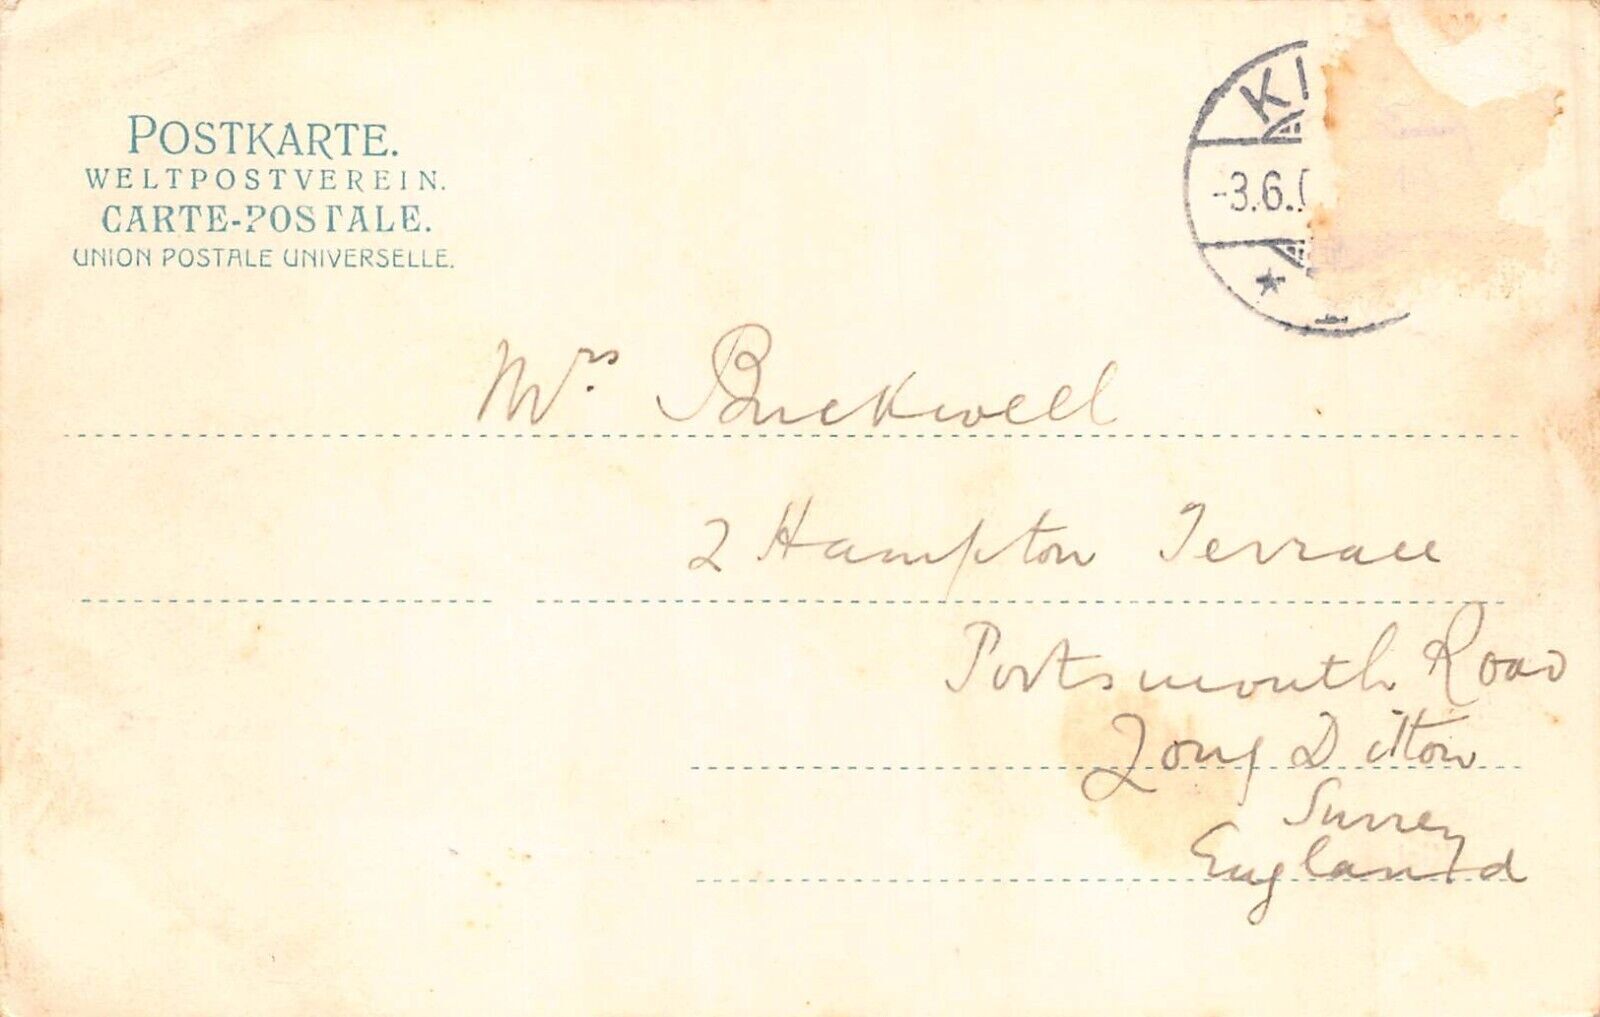 POSTKARTE.
WELTPOSTVEREIN.
CARTE-POSTALE.
UNION POSTALE UNIVERSELLE.
KI
-3.6.0
Mrs. Buckwell
2 Hampton Terrace
Portsmouth Road
Long Ditton
Surrey
England